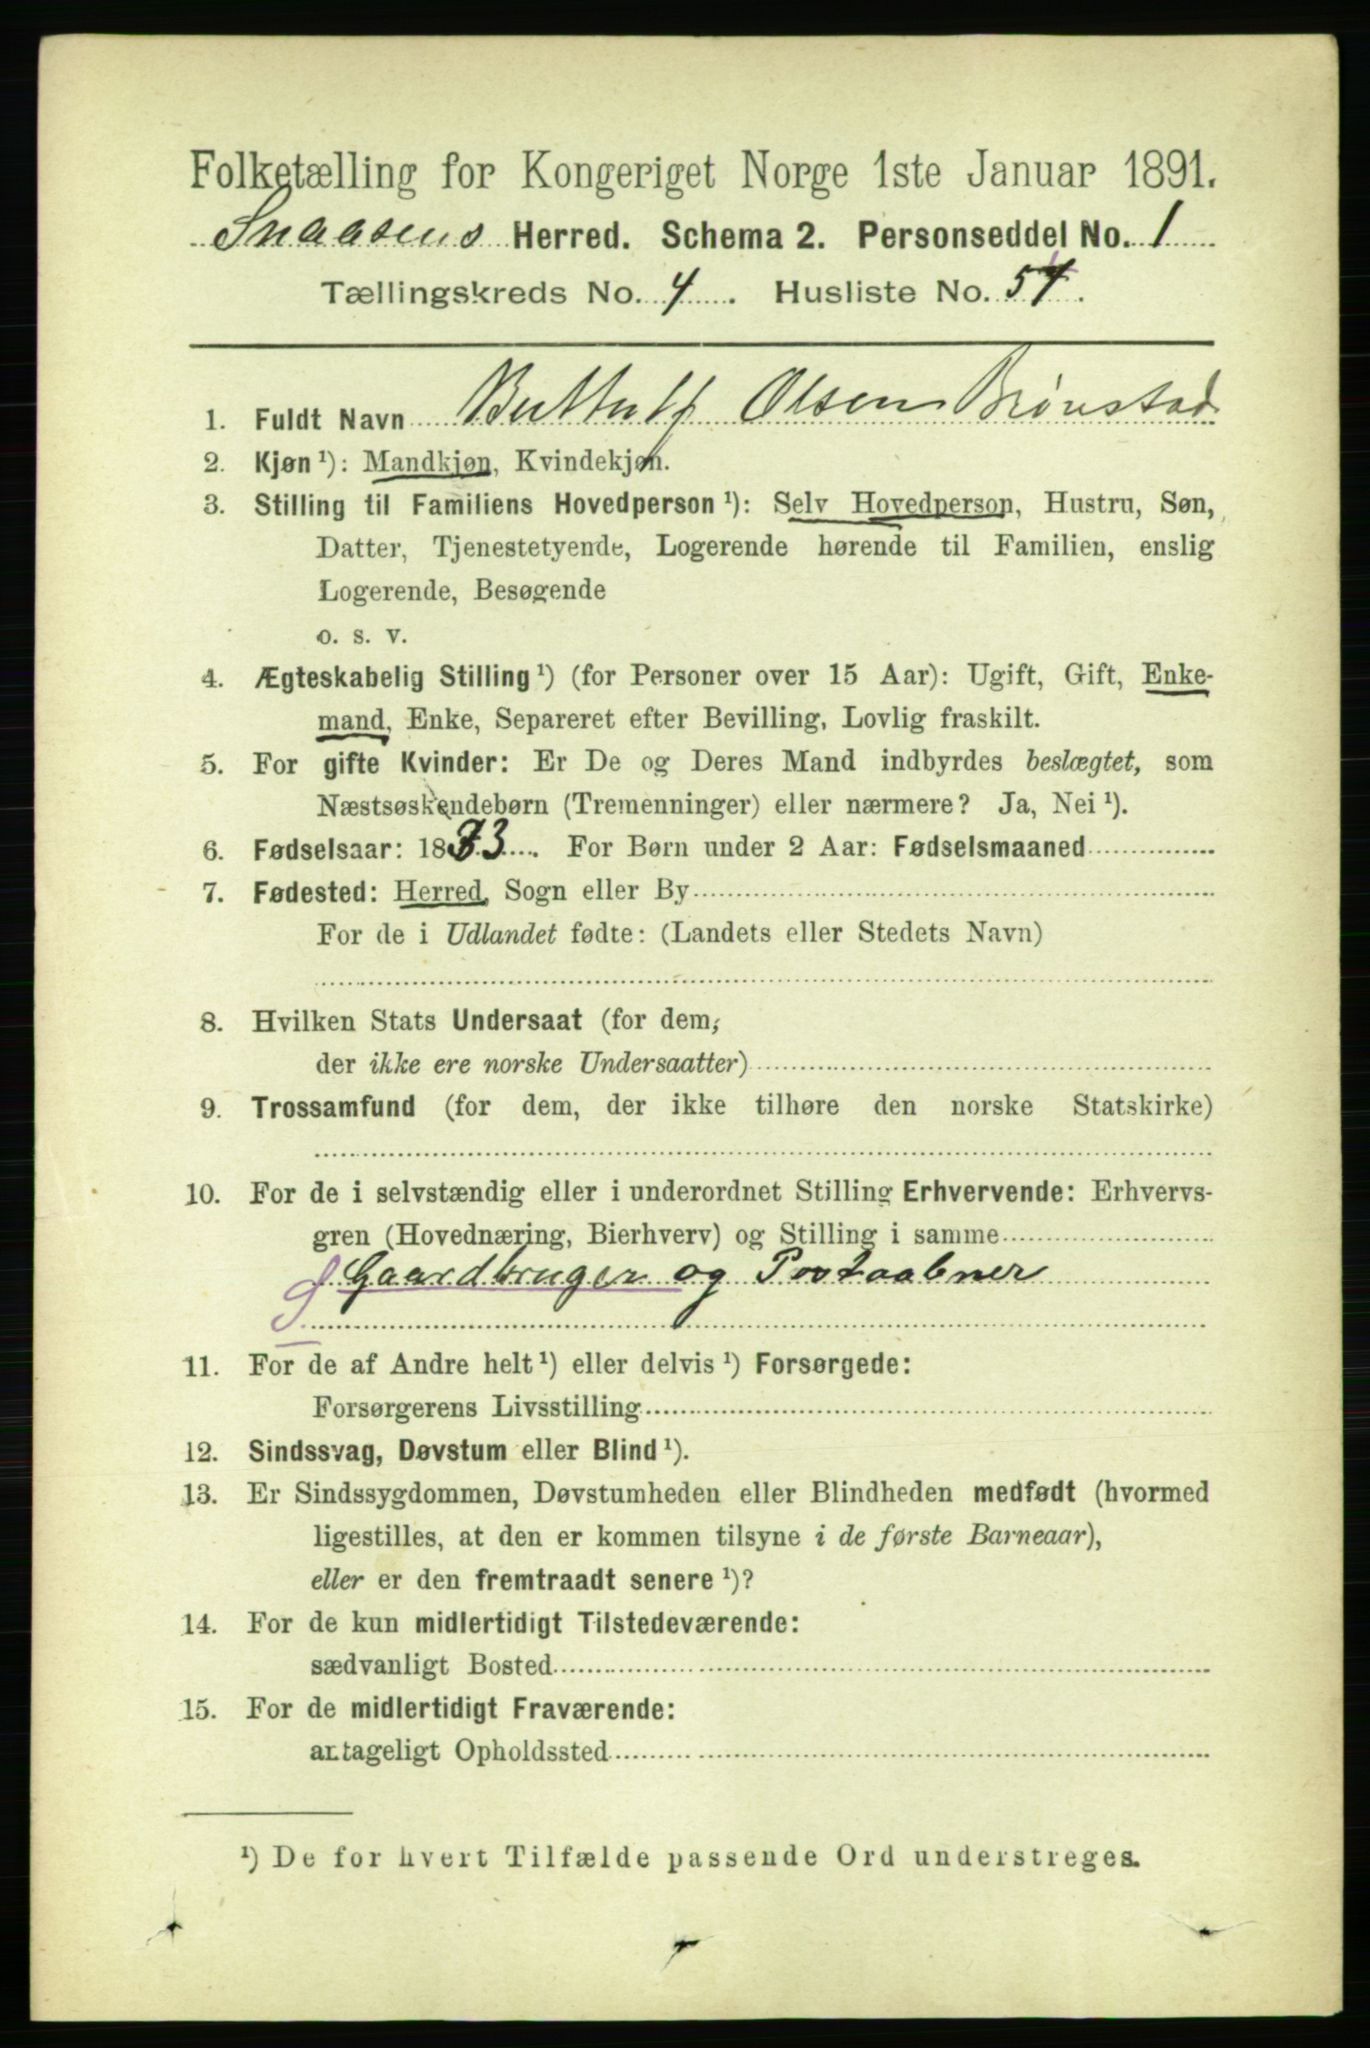 Folketælling for Kongeriget Norge 1ste Januar 1891.
Snaasens Herred. Schema 2. Personseddel No. 1
Tællingskreds No. 4. Husliste No. 54.
1. Fuldt Navn Buttulf Olsen Brønstad
2. Kjøn ¹): Mandkjøn, Kvindekjøn.
3. Stilling til Familiens Hovedperson ¹): Selv Hovedperson, Hustru, Søn,
Datter, Tjenestetyende, Logerende hørende til Familien, enslig
Logerende, Besøgende
o. s. v.
4. Ægteskabelig Stilling ¹) (for Personer over 15 Aar): Ugift, Gift, Enke-
mand, Enke, Separeret efter Bevilling, Lovlig fraskilt.
5. For gifte Kvinder: Er De og Deres Mand indbyrdes beslægtet, som
Næstsøskendebørn (Tremenninger) eller nærmere? Ja, Nei ¹).
6. Fødselsaar: 1833. For Børn under 2 Aar: Fødselsmaaned
7. Fødested: Herred, Sogn eller By
For de i Udlandet fødte: (Landets eller Stedets Navn)
8. Hvilken Stats Undersaat (for dem,
der ikke ere norske Undersaatter)
9. Trossamfund (for dem, der ikke tilhøre den norske Statskirke)
10. For de i selvstændig eller i underordnet Stilling Erhvervende: Erhvervs-
gren (Hovednæring, Bierhverv) og Stilling i samme
Gaardbruger og Postaabner
11. For de af Andre helt ¹) eller delvis ¹) Forsørgede:
Forsørgerens Livsstilling
12. Sindssvag, Døvstum eller Blind ¹).
13. Er Sindssygdommen, Døvstumheden eller Blindheden medfødt (hvormed
ligestilles, at den er kommen tilsyne i de første Barneaar),
eller er den fremtraadt senere ¹)?
14. For de kun midlertidigt Tilstedeværende:
sædvanligt Bosted
15. For de midlertidigt Fraværende:
antageligt Opholdssted
¹) De for hvert Tilfælde passende Ord understreges.